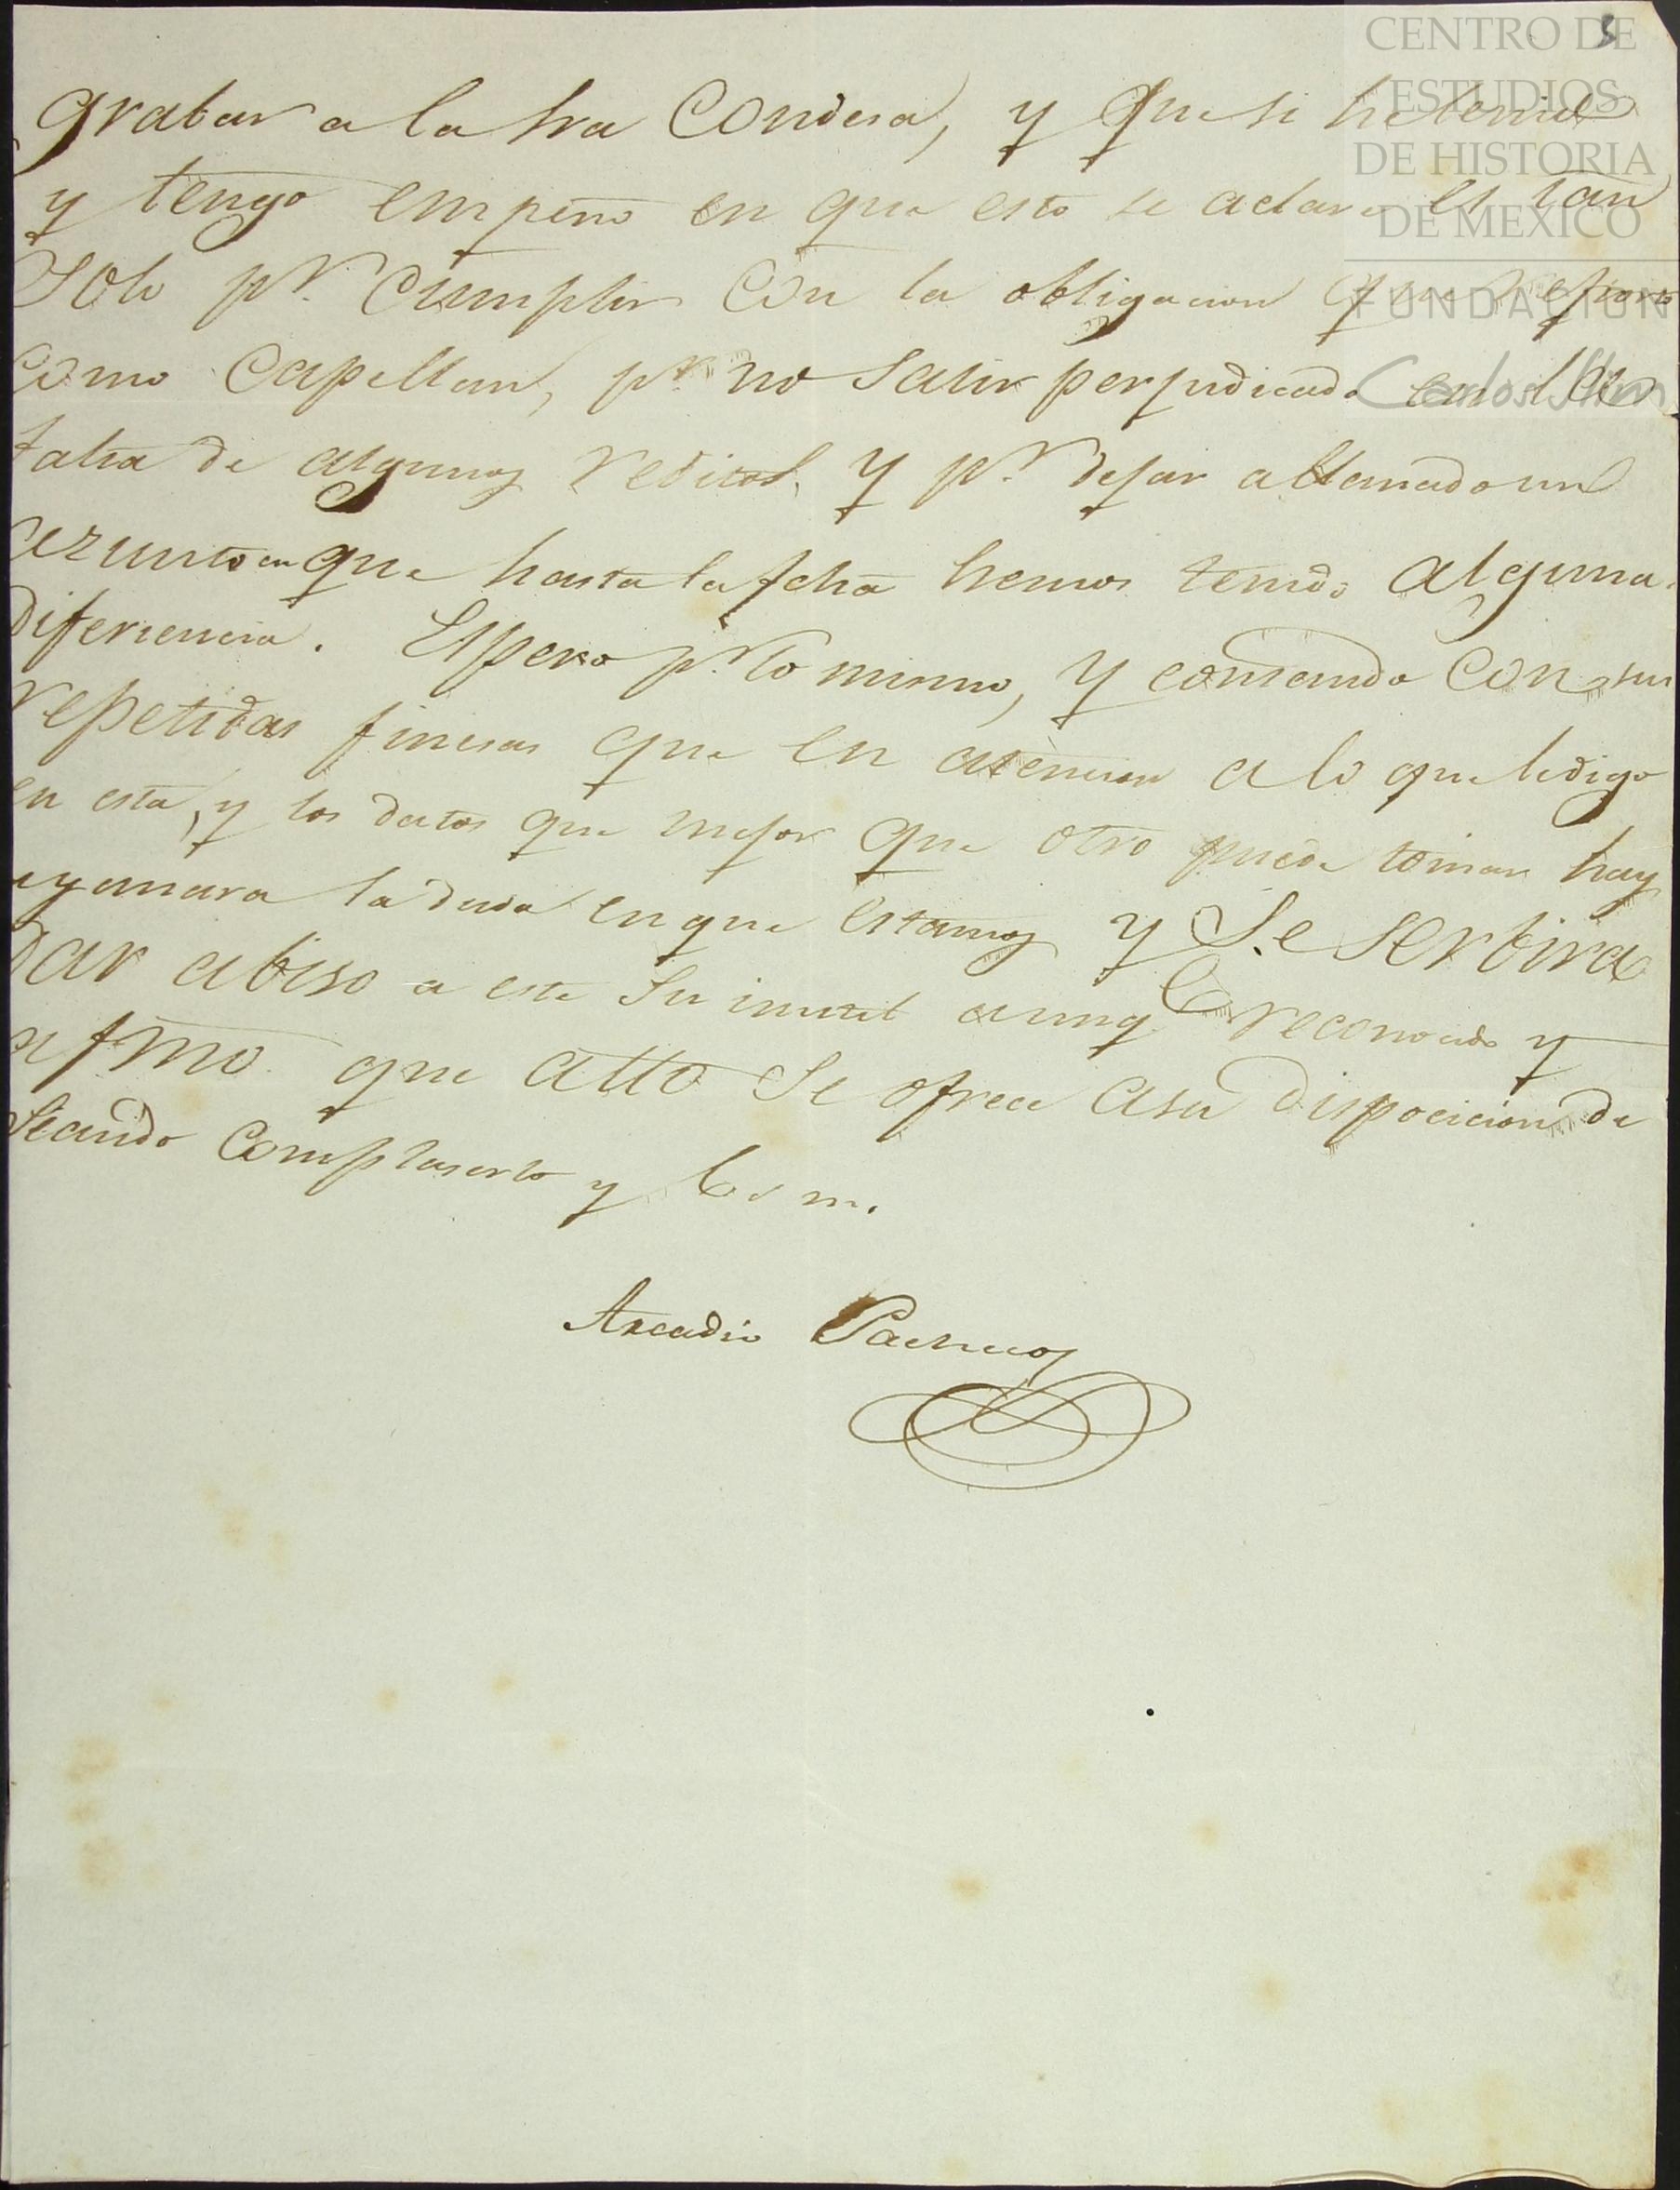 3
CENTRO DE
ESTUDIOS
DE HISTORIA
DE MEXICO
FUNDACION
Carlos Slim
grabar a la Sra Condesa, y que si he tenido
y tengo empeño en que esto se aclare es tan
solo pr. cumplir con la obligacion que reporto
como Capellan, pr. no salir perjudicado en la
falta de algunos reditos, y pr. dejar allanado un
azunto en que hasta la fcha hemos tenido alguna
diferiencia. Espero pr. lo mismo, y contando con sus
repetidas finesas que en atencion a lo que le digo
en esta, y los datos que mejor que otro puede tomar hay
ayanara la duda en que estamos y se serbira
dar abiso a este su inutil aunq reconocido y
afmo. que atto se ofrece a su disposicion de
seando complaserlo y b s m.
Arcadio Pacheco